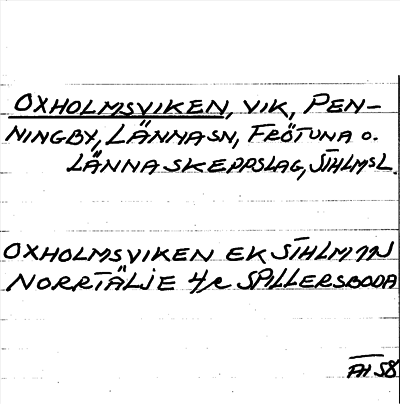 OXHOLMSVIKEN, VIK, PEN-
NINGBY, LÄNNASN, FRÖTUNA O.
LÄNNA SKEPPSLAG, STHLMSL.
OXHOLMSVIKEN EK STHLM
NORRTÄLJE SPILLERSBODA
58